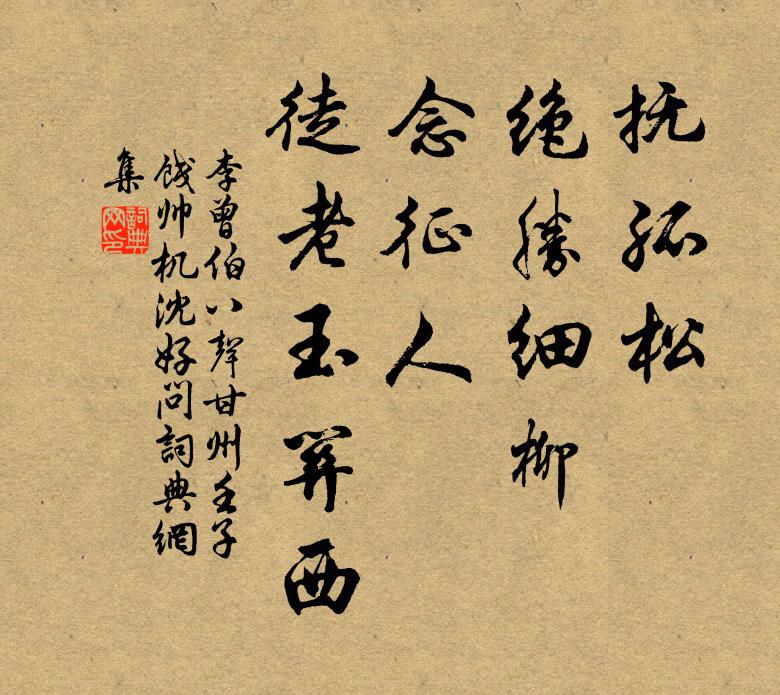 抚孤松
绝胜细柳
念征人
徒老玉关西
李曾伯八声甘州壬子
饯帅机沈好问詞典網
集
詞典网印